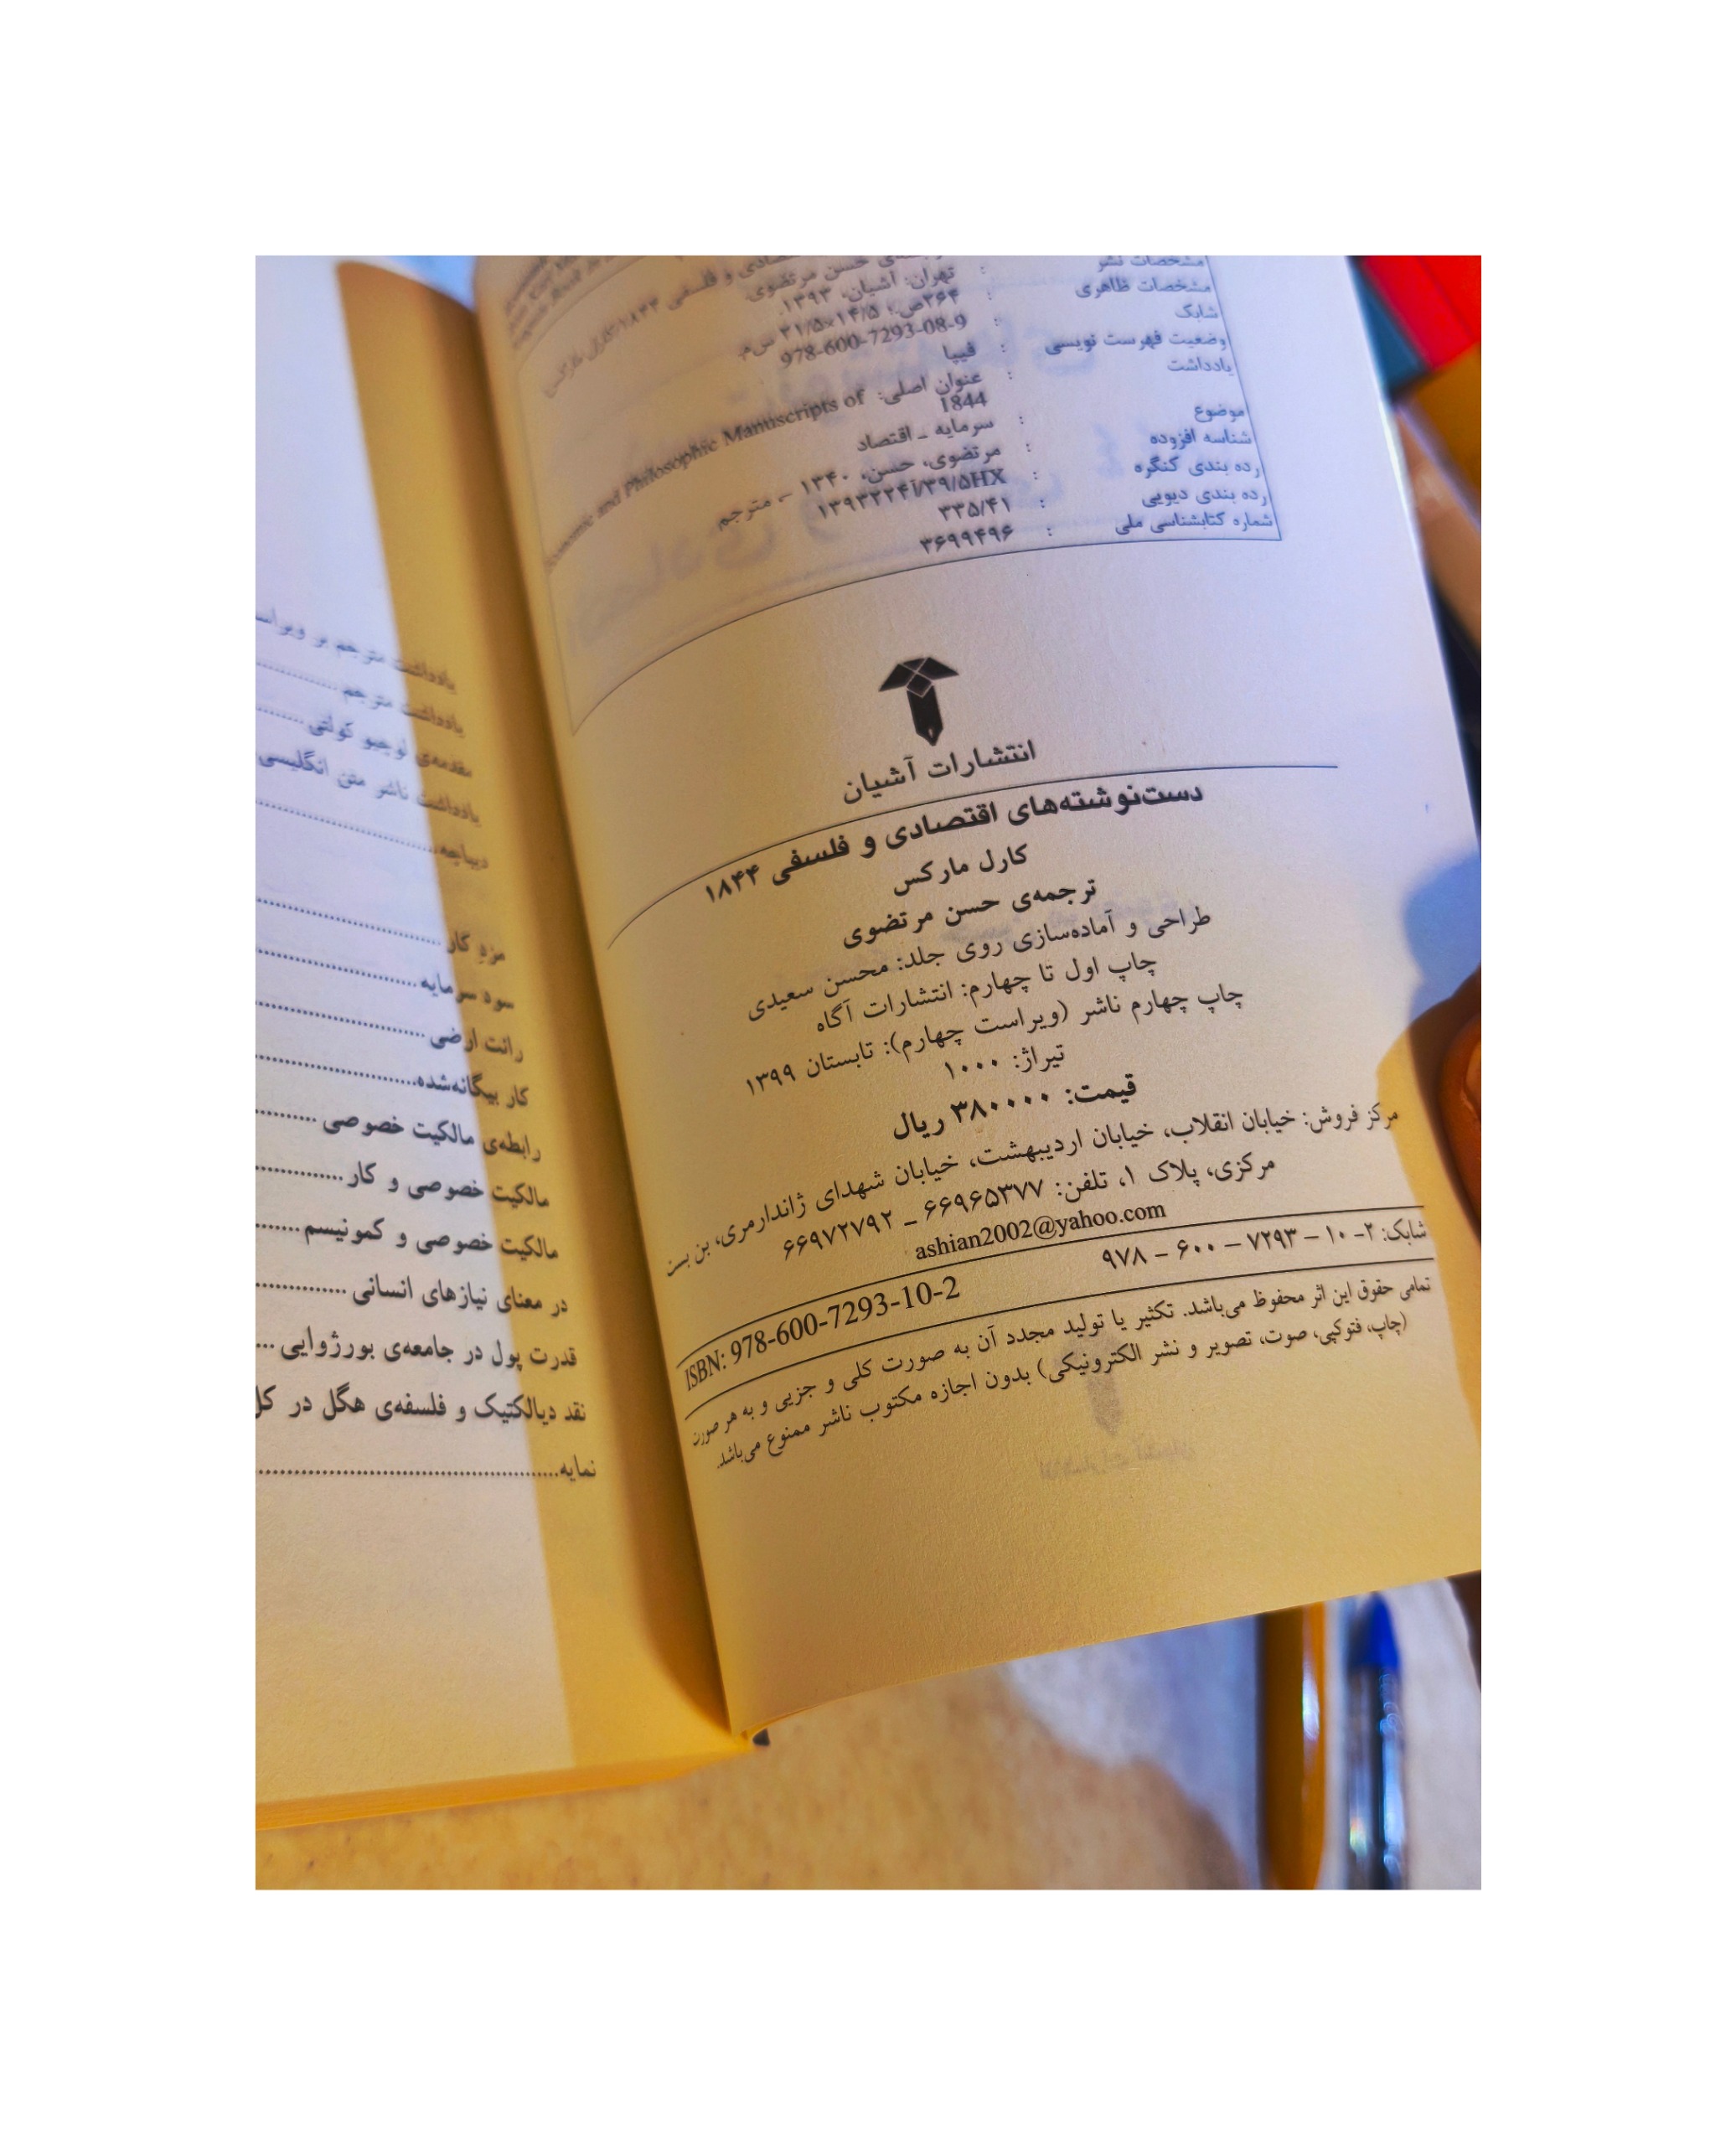 مشخصات نشر : تهران: آشیان، ۱۳۹۳.
مشخصات ظاهری : ۲۶۴ص.؛ ۱۴/۵×۲۱/۵ س‌م.
شابک : 978-600-7293-08-9
وضعیت فهرست نویسی : فیپا
یادداشت : عنوان اصلی: Economic and Philosophic Manuscripts of
1844
موضوع : سرمایه ـ اقتصاد
شناسه افزوده : مرتضوی، حسن، ۱۳۴۰ ـ مترجم
رده بندی کنگره : ۱۳۹۳۲۲۴آ/۳۹/۵HX
رده بندی دیویی : ۳۳۵/۴۱
شماره کتابشناسی ملی : ۳۶۹۹۴۹۶
انتشارات آشیان
دست‌نوشته‌های اقتصادی و فلسفی ۱۸۴۴
کارل مارکس
ترجمه‌ی حسن مرتضوی
طراحی و آماده‌سازی روی جلد: محسن سعیدی
چاپ اول تا چهارم: انتشارات آگاه
چاپ چهارم ناشر (ویراست چهارم): تابستان ۱۳۹۹
تیراژ: ۱۰۰۰
قیمت: ۳۸۰۰۰۰ ریال
مرکز فروش: خیابان انقلاب، خیابان اردیبهشت، خیابان شهدای ژاندارمری، بن بست
مرکزی، پلاک ۱، تلفن: ۶۶۹۶۵۳۷۷ ـ ۶۶۹۷۲۷۹۲
ashian2002@yahoo.com
شابک: ۲- ۱۰ – ۷۲۹۳ – ۶۰۰ – ۹۷۸
ISBN: 978-600-7293-10-2
تمامی حقوق این اثر محفوظ می‌باشد. تکثیر یا تولید مجدد آن به صورت کلی و جزیی و به هر صورت
(چاپ، فتوکپی، صوت، تصویر و نشر الکترونیکی) بدون اجازه مکتوب ناشر ممنوع می‌باشد.
یادداشت مترجم بر
یادداشت مترجم
مقدمه‌ی لوچیو کولتی
یادداشت ناشر متن انگلیسی
دیباچه
مزد کار
سود سرمایه
رانت ارضی
کار بیگانه‌شده
رابطه‌ی مالکیت خصوصی
مالکیت خصوصی و کار
مالکیت خصوصی و کمونیسم
در معنای نیازهای انسانی
قدرت پول در جامعه‌ی بورژوایی
نقد دیالکتیک و فلسفه‌ی هگل در کل
نمایه